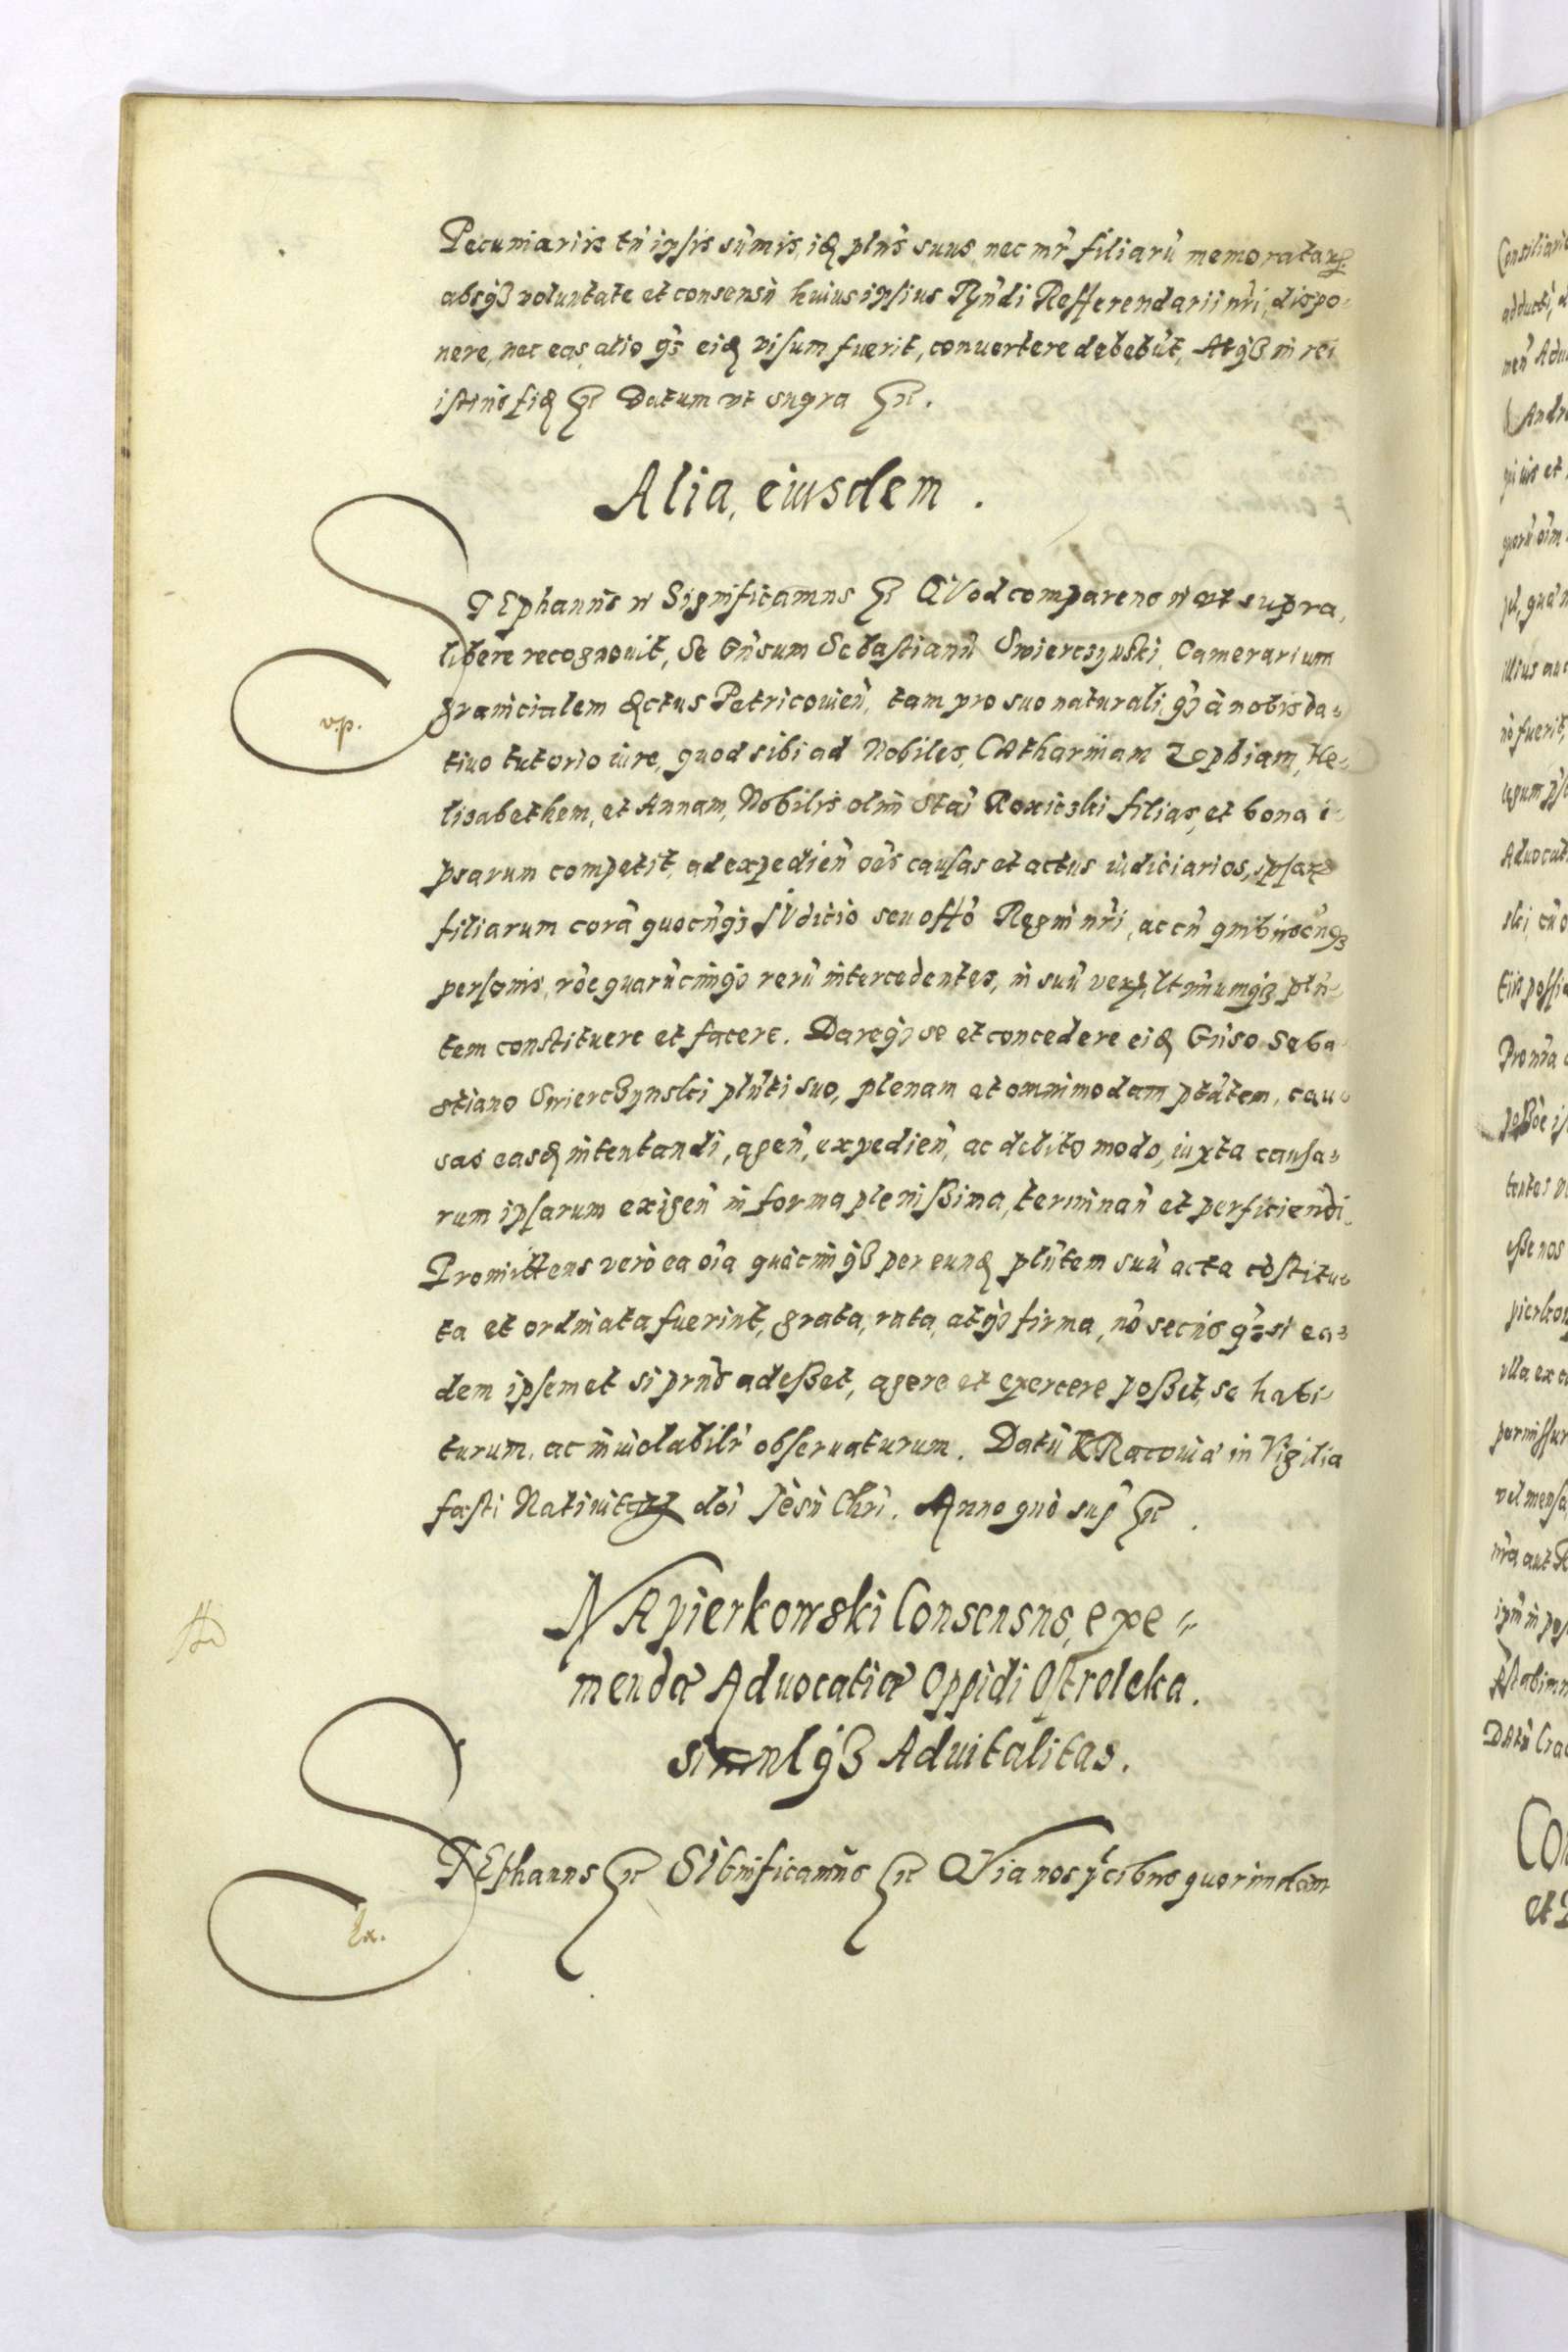 Pecuniariis tn̄ ipsis sūmis, idem plns̄ suus nec mr̄ filiarū memoratarum
absq3 voluntate et consensū huius ipsius Rn̄di Refferendarii nr̄i, dispo-
nere, nec eas alio q̄3 eidem visum fuerit, convertere debebūt, Atq3 in rei
istius fidem etc Datum vt supra etc.
Alia, eiusdem.
STEphanus n̄ Significamus etc QVod comparens n̄ ut supra,
libere recognovit, Se Gn̄sum Sebastianū Swierczynski Camerarium
granicialem dctus Petricovien̄, tam pro suo naturali, q3 à nobis da-
vp.
tivo tutorio iure, quod sibi ad Nobiles, CAtharinam Zophiam, He-
lisabethem, et Annam, Nobilis olim Stai Roxiczki filias, et bona i-
psarum competit, ad expedien̄ oēs causas et actus iudiciarios, ipsarum
filiarum corā quocn̄q3 IVditio seu offō Regni nr̄i, ac cū quibuscūq3
personis, rōe quarūcunq3 rerū intercedentes, in suū verum, ltimumq3 pln̄-
tem constituere et facere. Dareq3 se et concedere eidem Gn̄so Seba-
stiano Swierczynski pln̄ti suo, plenam et omnimodam ptātem, cau-
sas easdem intentandi, agen̄, expedien̄, ac debito modo, iuxta causa-
rum ipsarum exigen̄ in forma plenißima, terminan̄ et perficiendi.
Promittens verò ea oīa quæcunq3 per eundem pln̄tem suū acta cōstitu-
ta et ordinata fuerint, grata, rata, atq3 firma, nō secus q̄3 si ea-
dem ipsemet si prns̄ adeßet, agere et exercere poßet, se habi-
turum, ac inviolabilr̄ observaturum. Datū KRacoviæ in Vigilia
festi Nativitatis doī Jesū Chrī. Anno quo sup̄ etc.
NApierkowski Consensus, exe-
mendæ Advocatiæ Oppidi Ostroleka.
simulq3 Advitalitas.
STEphanus etc SIGnificamus etc QVia nos p̄cibus quorundam
lx.